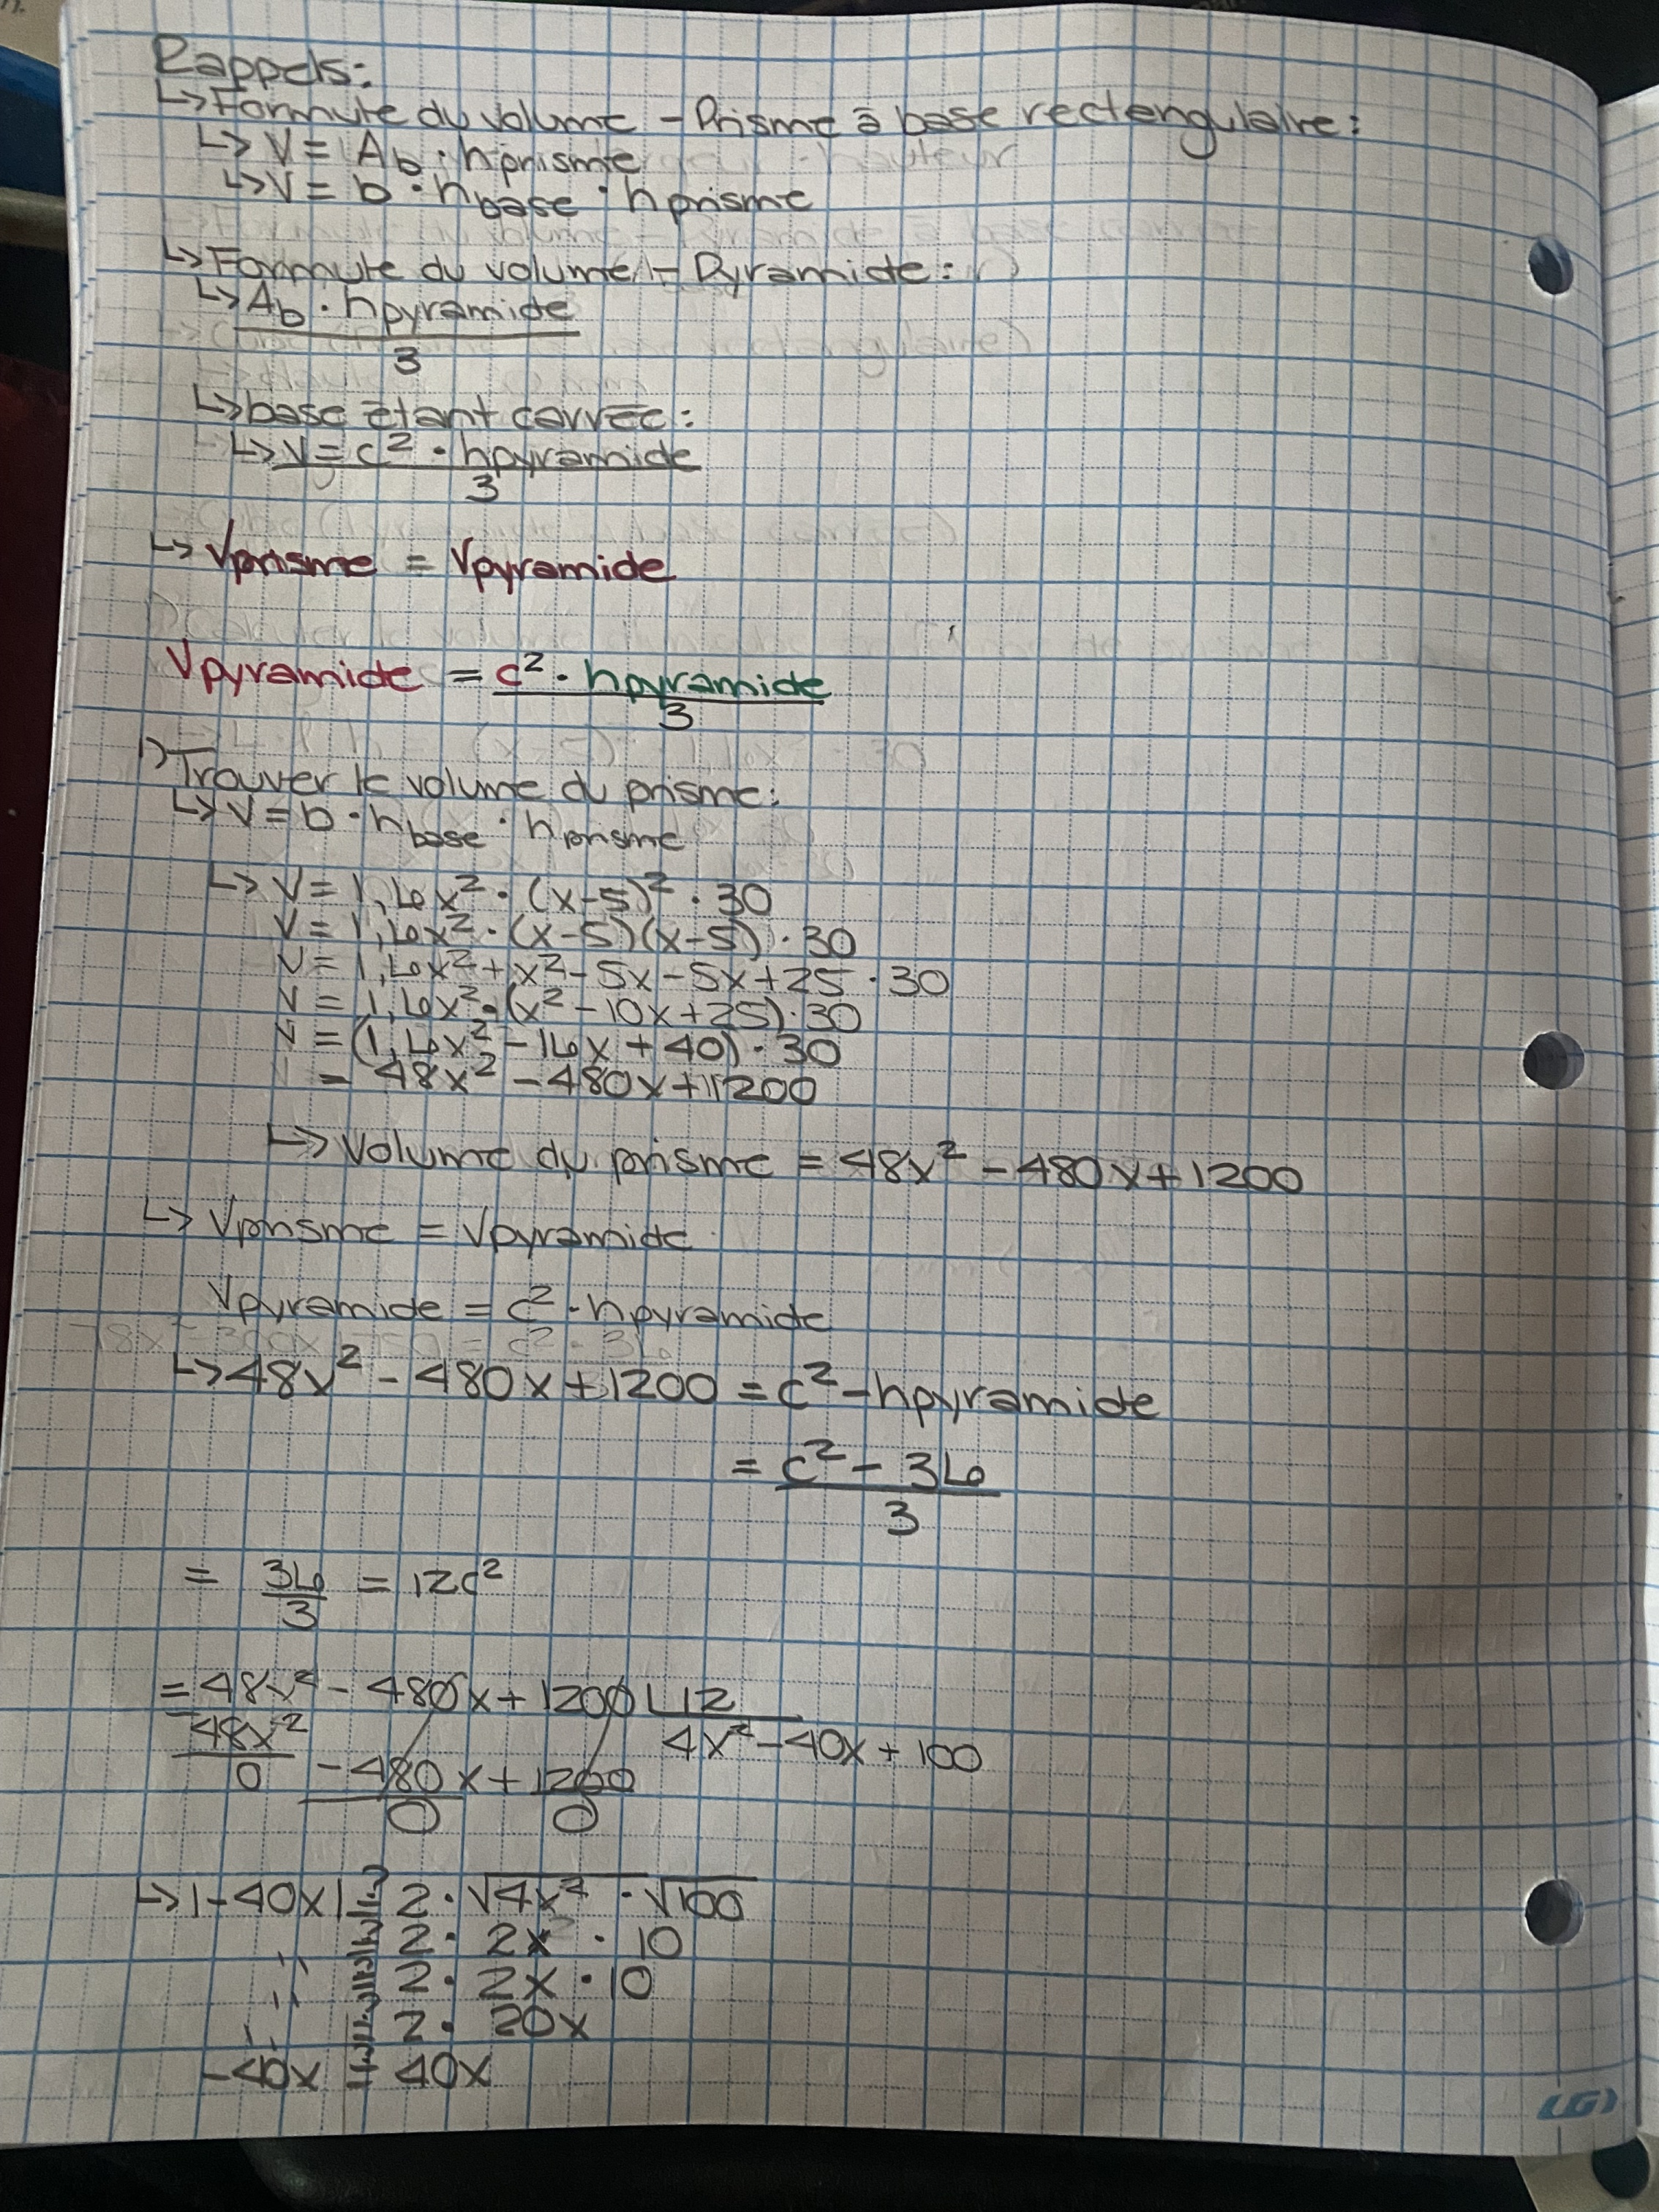 Rappels:
↳ Formule du volume - Prisme à base rectengulaire:
↳ V = Ab · hprisme
↳ V = b · hbase · hprisme
↳ Formule du volume - Pyramide:
↳ Ab · hpyramide
3
↳ base étant carrée:
↳ V = c² · hpyramide
3
↳ Vprisme = Vpyramide
Vpyramide = c² · hpyramide
3
1) Trouver le volume du prisme:
↳ V = b · hbase · hprisme
↳ V = 1,6x² · (x-5)² · 30
V = 1,6x² · (x-5)(x-5) · 30
V = 1,6x² + x² - 5x - 5x + 25 · 30
V = 1,6x² · (x² - 10x + 25) · 30
V = (1,6x² - 16x + 40) · 30
= 48x² - 480x + 1200
↳ Volume du prisme = 48x² - 480x + 1200
↳ Vprisme = Vpyramide
Vpyramide = c² · hpyramide
↳ 48x² - 480x + 1200 = c² - hpyramide
= c² - 36
3
= 36 = 12c²
3
= 48x² - 480x + 1200 ∟12
48x² 4x² - 40x + 100
0 - 480x + 1200
0 0
↳ |-40x| 2 · √4x² · √100
2 · 2x · 10
2 · 2x · 10
2 · 20x
-40x 40x
(G)